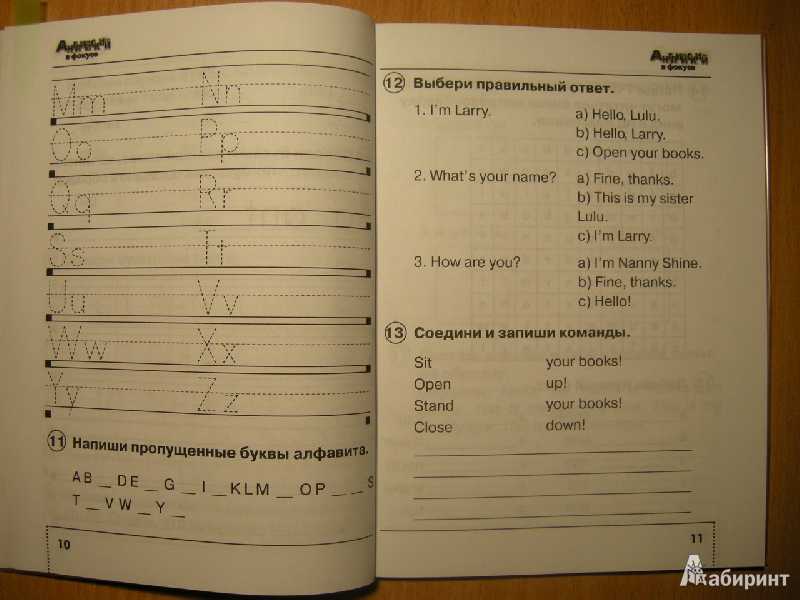 Английский
в фокусе
Mm Nn
Oo Pp
Qq Rr
Ss Tt
Uu Vv
Ww Xx
Yy Zz
11 Напиши пропущенные буквы алфавита.
A B _ D E _ G _ I _ K L M _ O P _ _ S
T _ V W _ Y _
10
Английский
в фокусе
12 Выбери правильный ответ.
1. I'm Larry. a) Hello, Lulu.
b) Hello, Larry.
c) Open your books.
2. What's your name? a) Fine, thanks.
b) This is my sister
Lulu.
c) I'm Larry.
3. How are you? a) I'm Nanny Shine.
b) Fine, thanks.
c) Hello!
13 Соедини и запиши команды.
Sit your books!
Open up!
Stand your books!
Close down!
11
Лабиринт